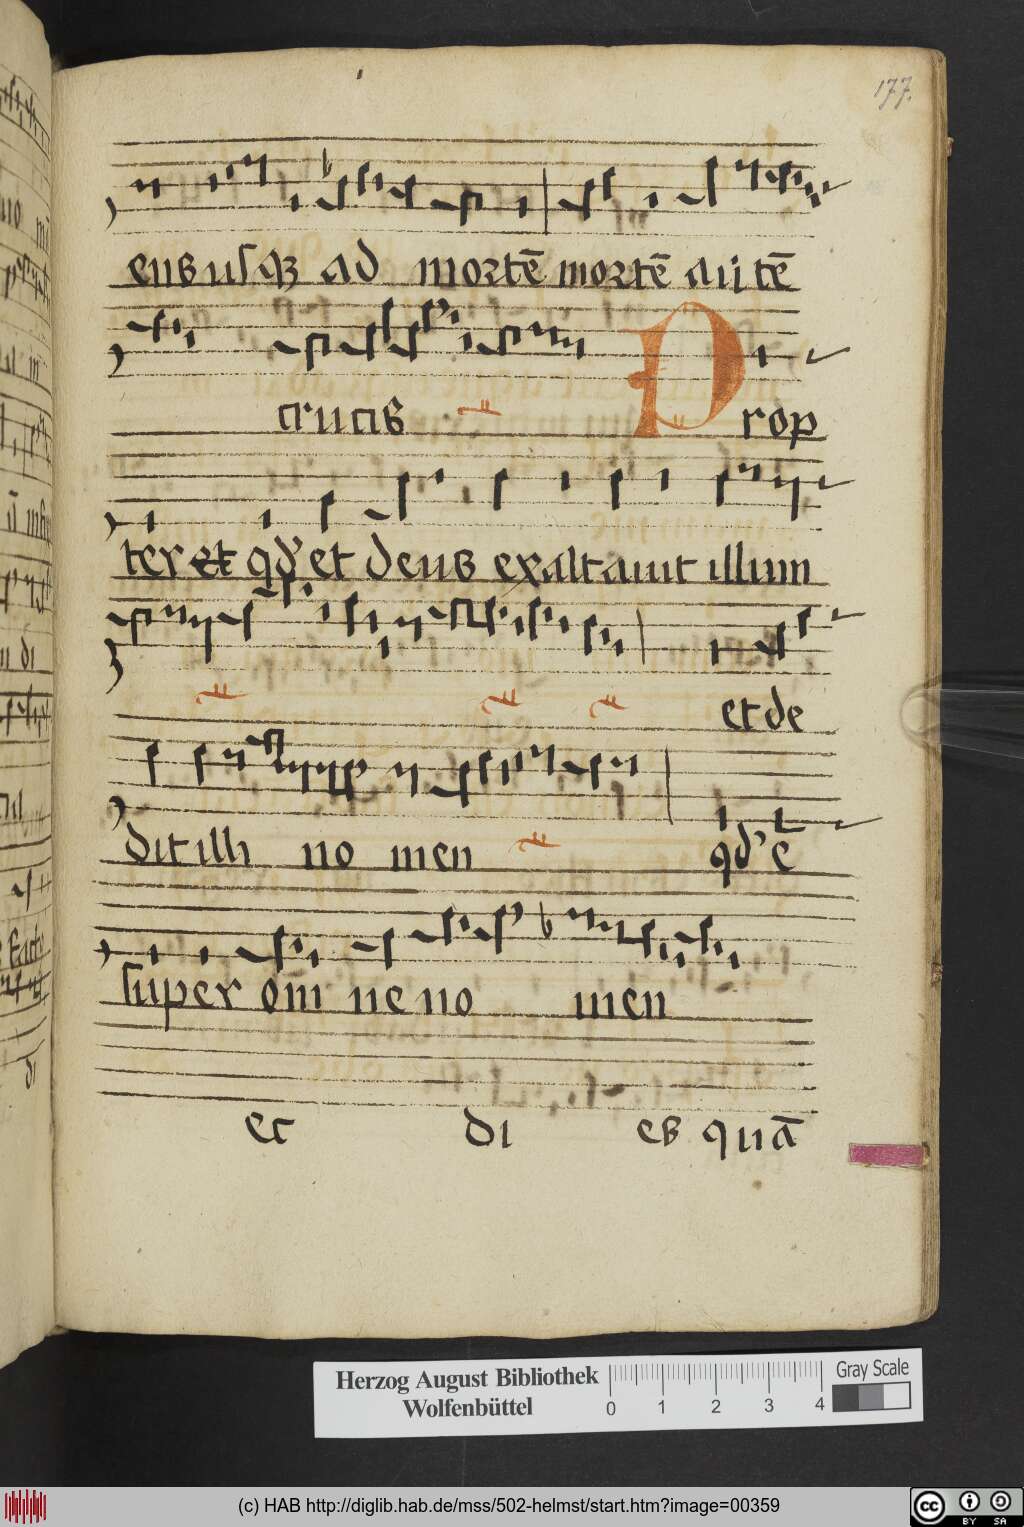 177.
enſ uſqꝫ ad mortē mortē autē
crucis Prop
ter et qd' et deus exaltauit illum
et de
dit illi no men qd' ē
super om ne no men
et di es quā
Herzog August Bibliothek
Wolfenbüttel
0 1 2 3 4
Gray Scale
(c) HAB http://diglib.hab.de/mss/502-helmst/start.htm?image=00359
cc BY SA